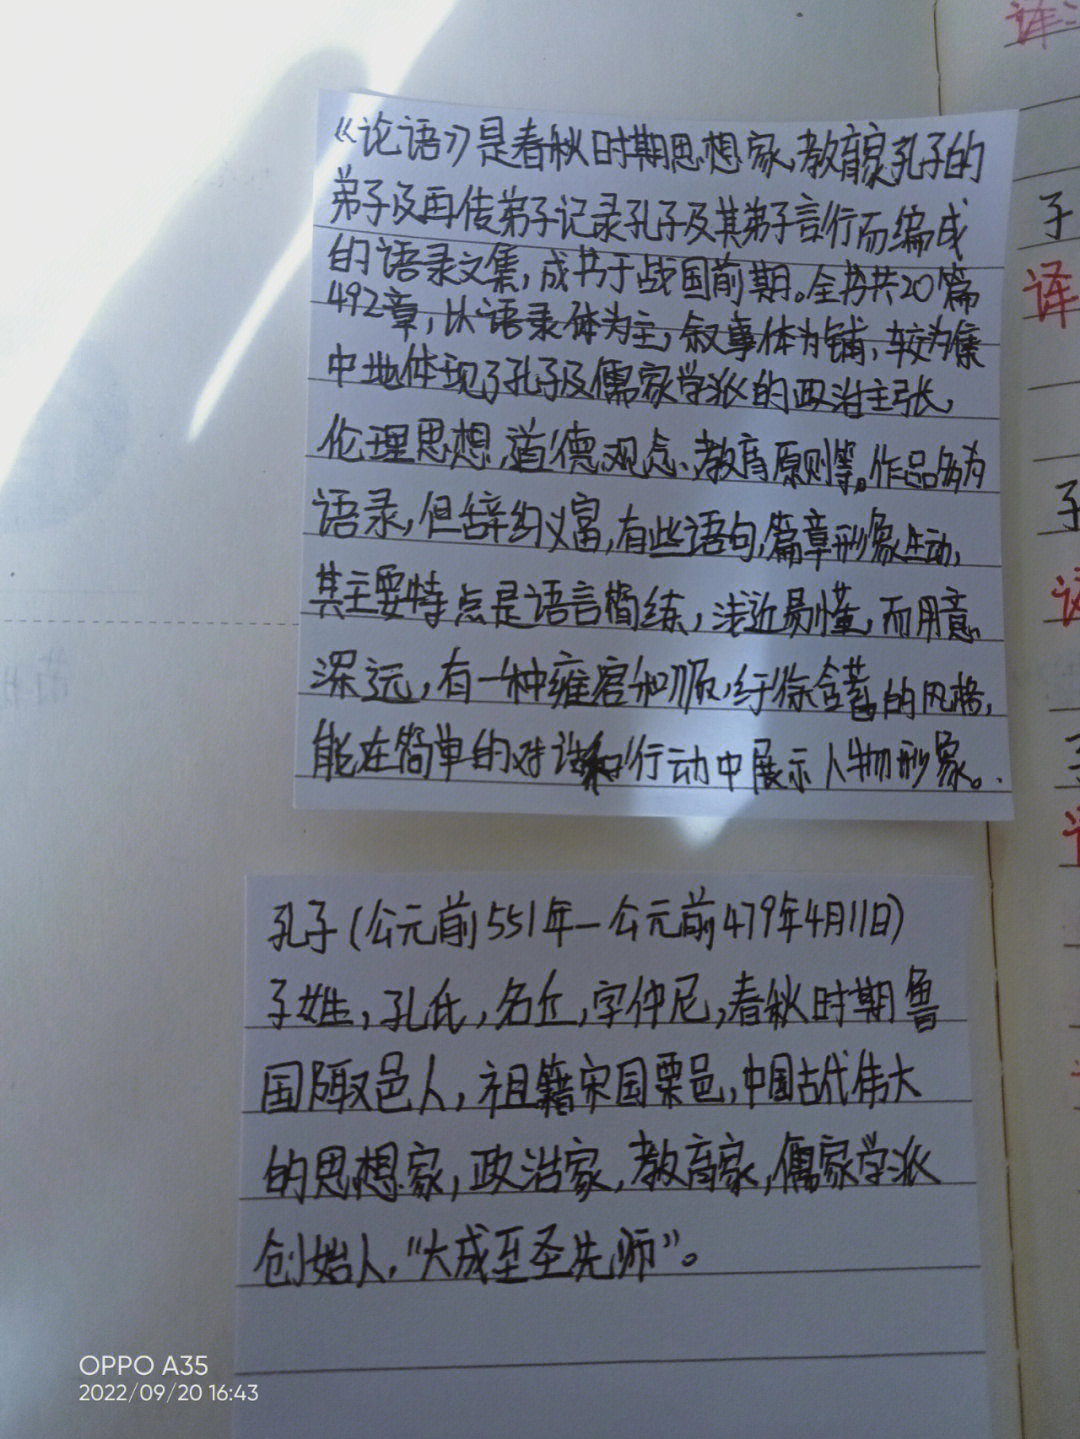 《论语》是春秋时期思想家、教育家孔子的
弟子及再传弟子记录孔子及其弟子言行而编成
的语录文集,成书于战国前期。全书共20篇
492章,以语录体为主,叙事体为铺,较为集
中地体现了孔子及儒家学派的政治主张、
伦理思想、道德观念、教育原则等。作品多为
语录,但辞约义富,有些语句,篇章形象生动,
其主要特点是语言简练,浅近易懂,而用意
深远,有一种雍容和顺,纡徐含蓄的风格,
能在简单的对话和行动中展示人物形象。
孔子(公元前551年—公元前479年4月11日)
子姓,孔氏,名丘,字仲尼,春秋时期鲁
国陬邑人,祖籍宋国栗邑,中国古代伟大
的思想家,政治家,教育家,儒家学派
创始人,“大成至圣先师”。
译
子
译
子
OPPO A35
2022/09/20 16:43